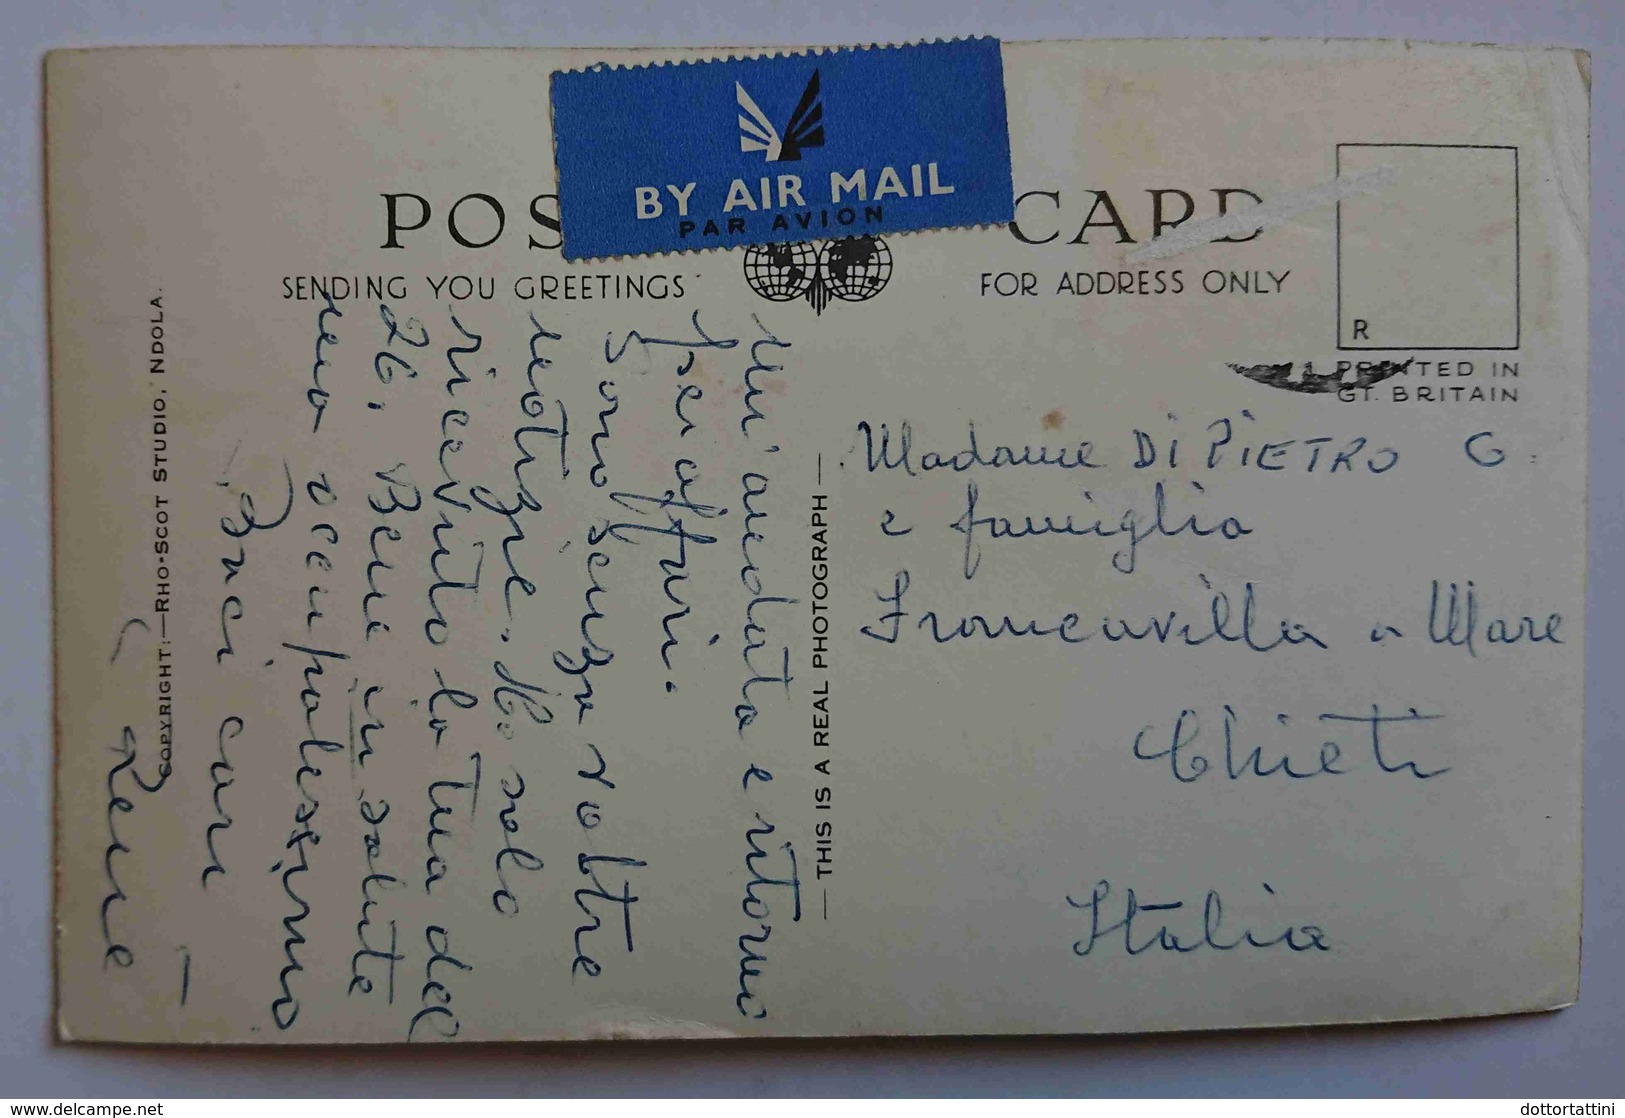 POS CARD
BY AIR MAIL
PAR AVION
SENDING YOU GREETINGS
FOR ADDRESS ONLY
R
PRINTED IN
GT. BRITAIN
COPYRIGHT:—RHO-SCOT STUDIO, NDOLA.
— THIS IS A REAL PHOTOGRAPH —
Un'andata e ritorno
per affari.
Sono senza vostre
notizie. Ho solo
ricevuto la tua del
26. Bene in salute
ma occupatissimo
Baci cari
René
Madame DI PIETRO G.
e famiglia
Francavilla a Mare
Chieti
Italia
delcampe.net
dottortattini